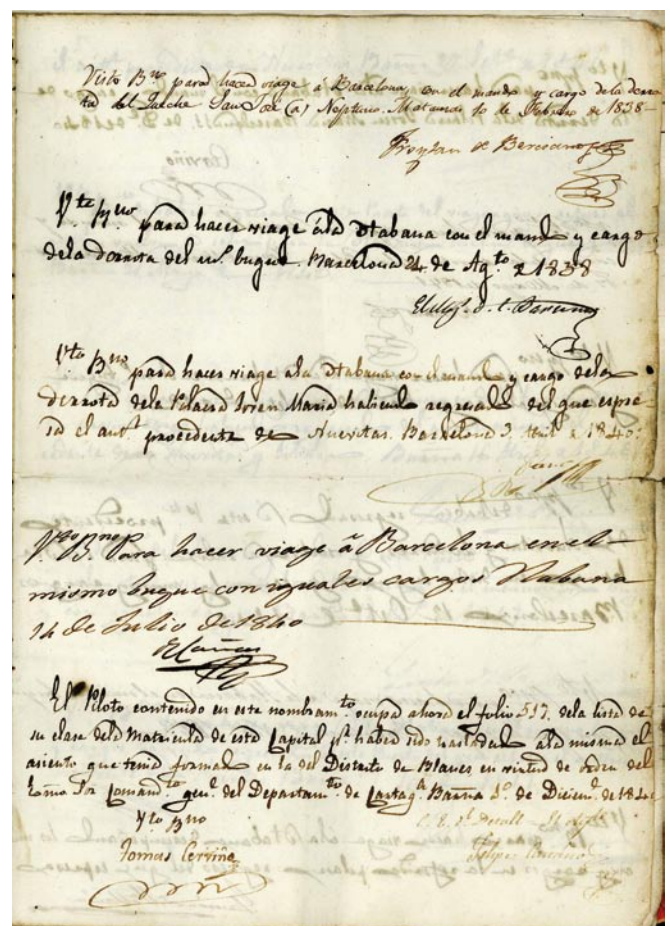 Visto Bno para hacer viage á Barcelona, con el mando y cargo dela derro
ta del Queche San José (a) Neptuno. Matanzas 10 de Febrero de 1838
Froylan de Berciano
Vto Bno para hacer viage ála Habana con el mando y cargo
dela derrota del m.o buque. Barcelona 24 de Agto de 1838
Vto Bno para hacer viage ala Habana con el mando y cargo dela
derrota dela Polacra Joven Maria habiendo regresado del que espre
sa el antr procedente de Nuevitas. Barcelona 3 Abril de 1840
Vto Bno Para hacer viage á Barcelona en el
mismo buque con iguales cargos Habana
14 de Julio de 1840
Cañas
El Piloto contenido en este nombramto ocupa ahora el folio 517. dela lista de
su clase dela Matricula de esta Capital pr haber sido trasladado ala misma el
asiento que tenia formado en la del Distrito de Blanes en virtud de orden del
Exmo Sor Comandte genl del Departamto de Cartaga Barna 1o de Diciemb de 1840
Vto Bno
Tomas Cerviño
C. E. Dl Detall
Felipe